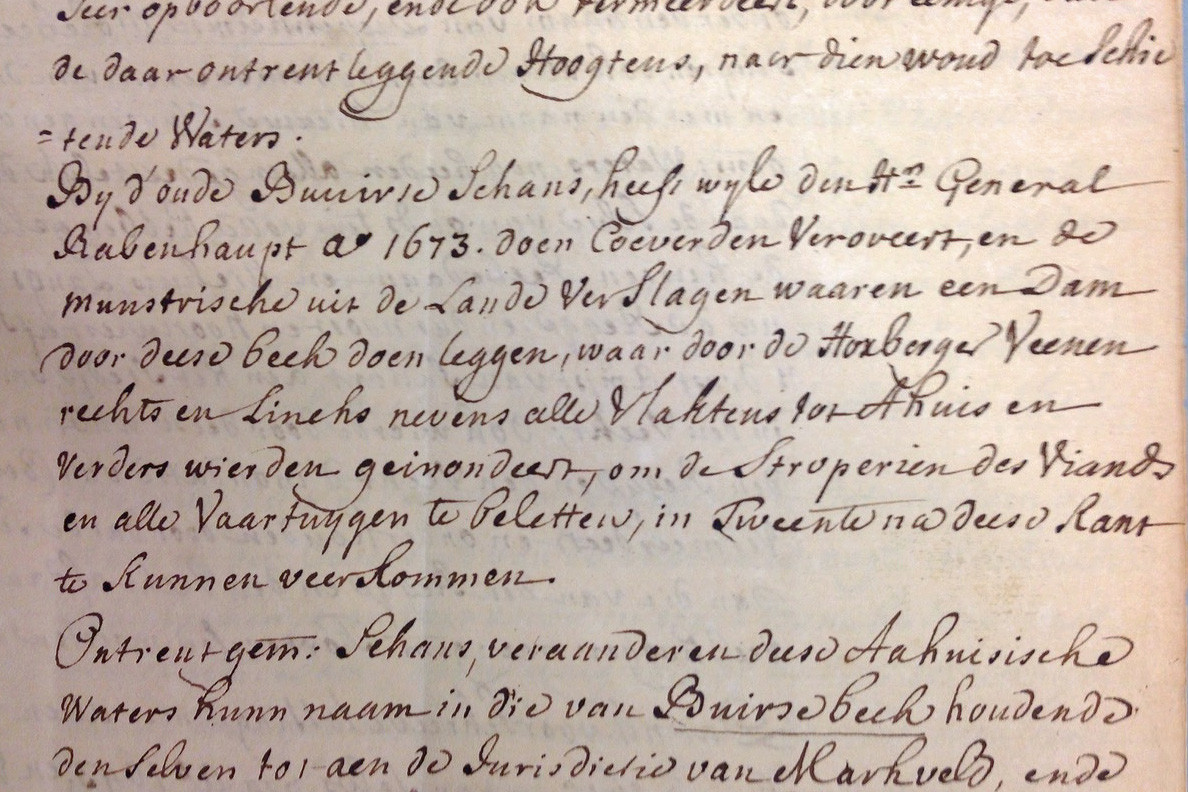 seer opboortende, ende ook vermeerdert, door eenige, van
de daar ontrent leggende Hoogtens, naar dien woud toe Schie
=tende Waters.
By d'oude Buurse Schans, heeft wyle den Hrn General
Rabenhaupt ao 1673. doen Coeverden Veroveert, en de
munstrische uit de Lande VerSlagen waaren een Dam
door deese beek doen leggen, waar door de Hoxberger Veenen
rechts en Lincks nevens alle Vlaktens tot Ahuis en
Verders wierden geinondeert, om de Stroperien des Viands
en alle Vaartuygen te beletten, in Tweente na deese Kant
te Kunnen veerKommen.
Ontrent gem: Schans, veraanderen deese Aahuisische
Waters hunn naam in die van Buirse beek houdende
den Selven tot aen de Jurisdictie van Markveld, ende